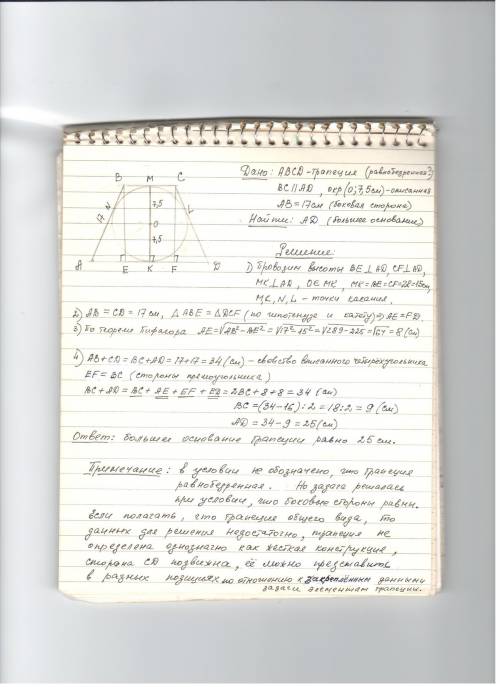 B M C
Дано: ABCD - трапеция (равнобедренная?)
BC || AD, окр (0; 7,5см) - описанная
AB = 17см (боковая сторона)
Найти: AD (большее основание)
17 N 7,5 L
0
7,5
A E K F D
Решение:
1) Проводим высоты BE⊥AD, CF⊥AD,
MK⊥AD, O∈MK, MK=BE=CF=2R=15см,
M,K,N,L - точки касания.
2) AB = CD = 17см, △ABE = △DCF (по гипотенузе и катету) ⇒ AE = FD.
3) По теореме Пифагора AE=√AB²-BE² = √17²-15² = √289-225 = √64 = 8 (см)
4) AB+CD = BC+AD = 17+17 = 34 (см) - свойство вписанного четырёхугольника
EF = BC (стороны прямоугольника)
BC + AD = BC + AE + EF + FD = 2BC + 8 + 8 = 34 (см)
BC = (34-16) : 2 = 18 : 2 = 9 (см)
AD = 34 - 9 = 25 (см)
Ответ: большее основание трапеции равно 25 см.
Примечание: в условии не обозначено, что трапеция
равнобедренная. Но задача решалась
при условии, что боковые стороны равны.
Если полагать, что трапеция общего вида, то
данных для решения недостаточно, трапеция не
определена однозначно как жесткая конструкция,
сторона CD подвижна, её можно представить
в разных позициях по отношению к закреплённым данными
задачи элементам трапеции.